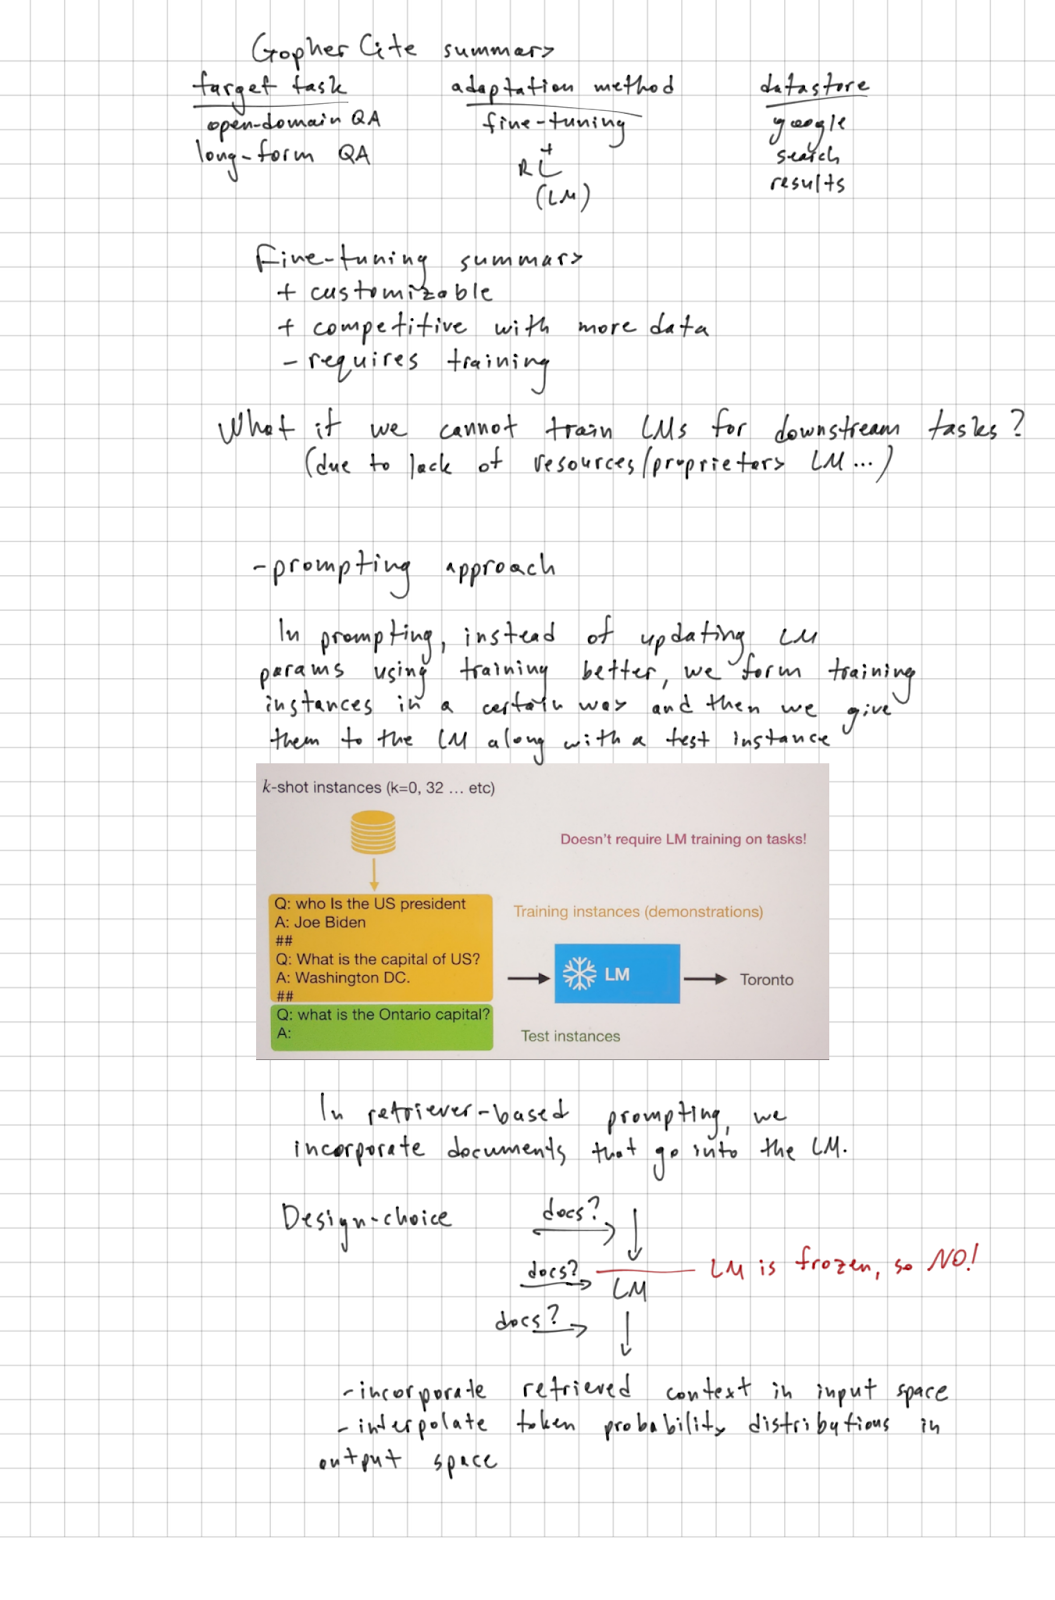 GopherCite summary
target task adaptation method datastore
open-domain QA fine-tuning google
long-form QA + search
RL results
(LM)
Fine-tuning summary
+ customizable
+ competitive with more data
- requires training
What if we cannot train LMs for downstream tasks?
(due to lack of resources/proprietary LM...)
- prompting approach
In prompting, instead of updating LM
params using training better, we form training
instances in a certain way and then we give
them to the LM along with a test instance
k-shot instances (k=0, 32 ... etc)
Doesn't require LM training on tasks!
Q: who Is the US president
A: Joe Biden
##
Q: What is the capital of US?
A: Washington DC.
##
Q: what is the Ontario capital?
A:
Training instances (demonstrations)
LM
Toronto
Test instances
In retriever-based prompting, we
incorporate documents that go into the LM.
Design-choice docs?
docs? LM is frozen, so NO!
LM
docs?
- incorporate retrieved context in input space
- interpolate token probability distributions in
output space